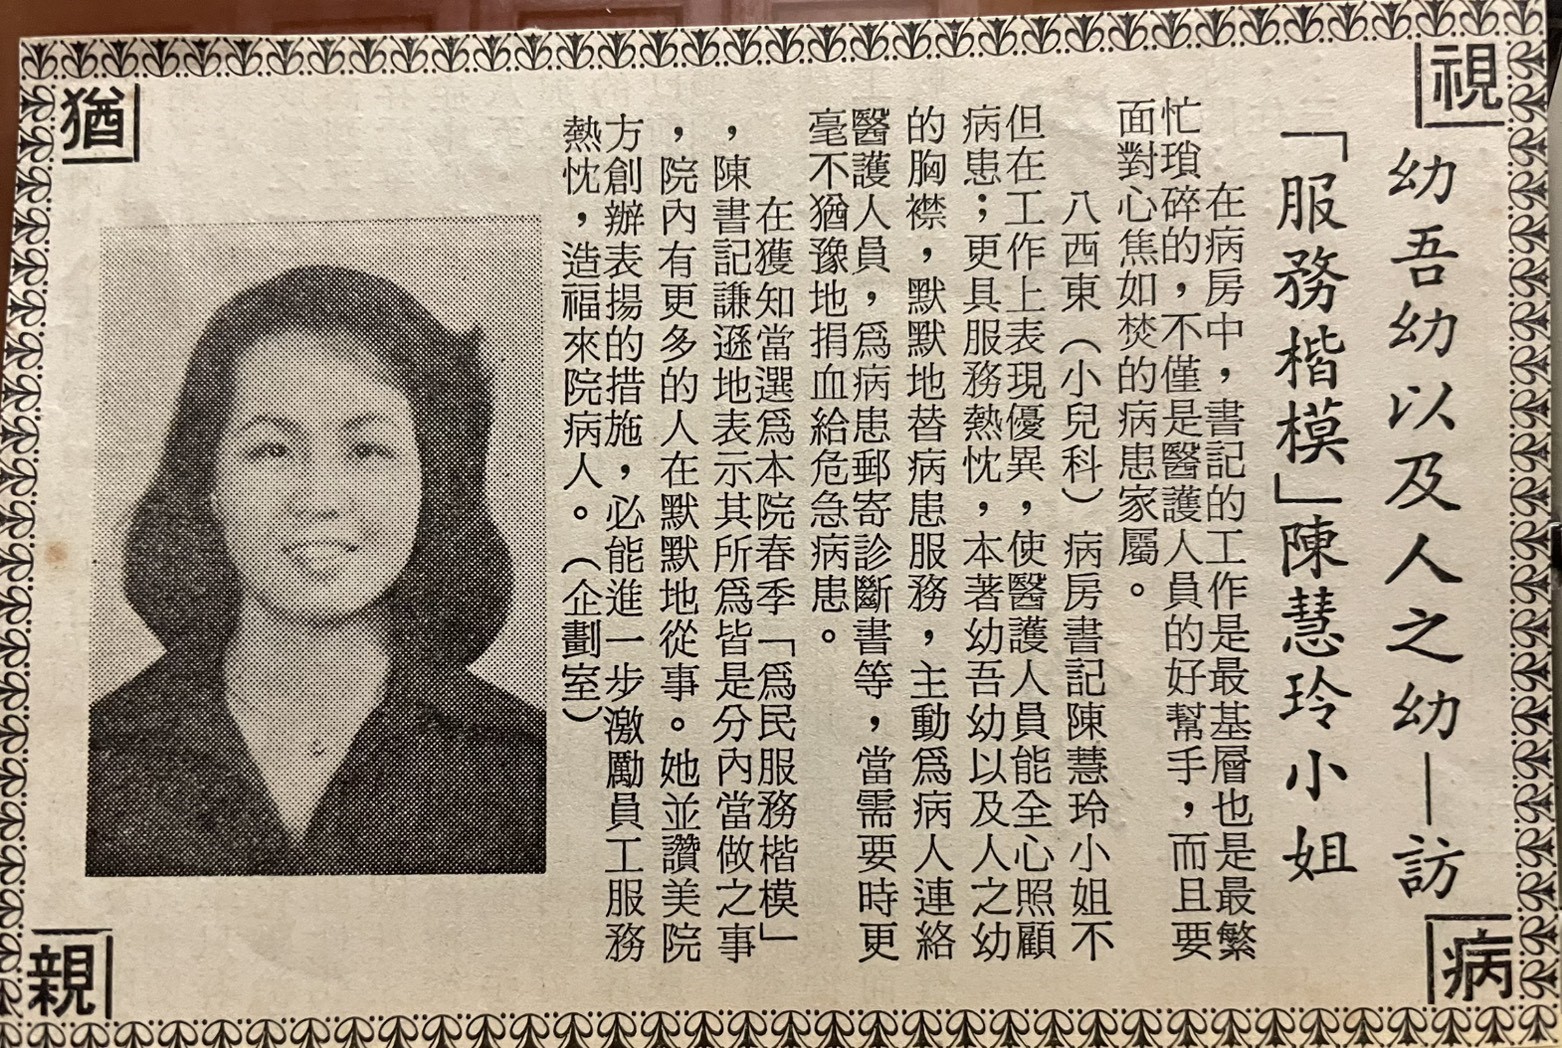 視
病
猶
親
幼吾幼以及人之幼—訪
「服務楷模」陳慧玲小姐
在病房中，書記的工作是最基層也是最繁
忙瑣碎的，不僅是醫護人員的好幫手，而且要
面對心焦如焚的病患家屬。
八西東（小兒科）病房書記陳慧玲小姐不
但在工作上表現優異，使醫護人員能全心照顧
病患；更具服務熱忱，本著幼吾幼以及人之幼
的胸襟，默默地替病患服務，主動為病人連絡
醫護人員，為病患郵寄診斷書等，當需要時更
毫不猶豫地捐血給危急病患。
在獲知當選為本院春季「為民服務楷模」
，陳書記謙遜地表示其所為皆是分內當做之事
，院內有更多的人在默默地從事。她並讚美院
方創辦表揚的措施，必能進一步激勵員工服務
熱忱，造福來院病人。（企劃室）